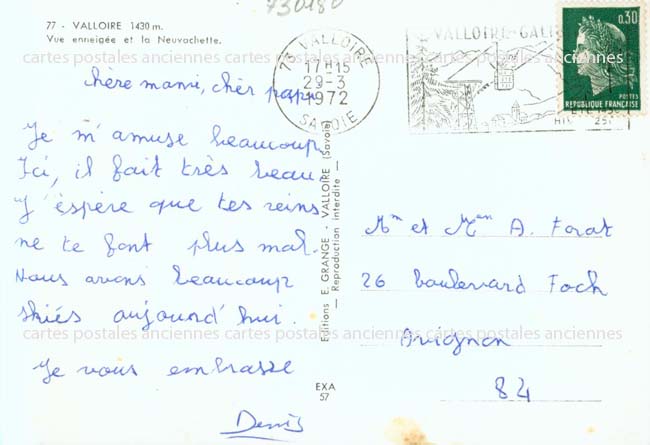 730180
77 - VALLOIRE 1430 m.
Vue enneigée et la Neuvachette.
chère mami, cher papi
Je m'amuse beaucoup
Ici, il fait très beau
J'espère que tes reins
ne te font plus mal.
Nous avons beaucoup
skiés aujourd'hui.
Je vous embrasse
Denis
EXA
57
Editions E. GRANGE - VALLOIRE (Savoie)
— Reproduction interdite —
73 VALLOIRE
17H15
29-3
1972
SAVOIE
VALLOIRE-GALI
0,30
POSTES
REPUBLIQUE FRANÇAISE
Mr et Mme A. Forat
26 boulevard Foch
Avignon
84
cartes postales anciennes cartes postales anciennes cartes postales anciennes
cartes postales anciennes cartes postales anciennes cartes postales anciennes
cartes postales anciennes cartes postales anciennes cartes postales anciennes